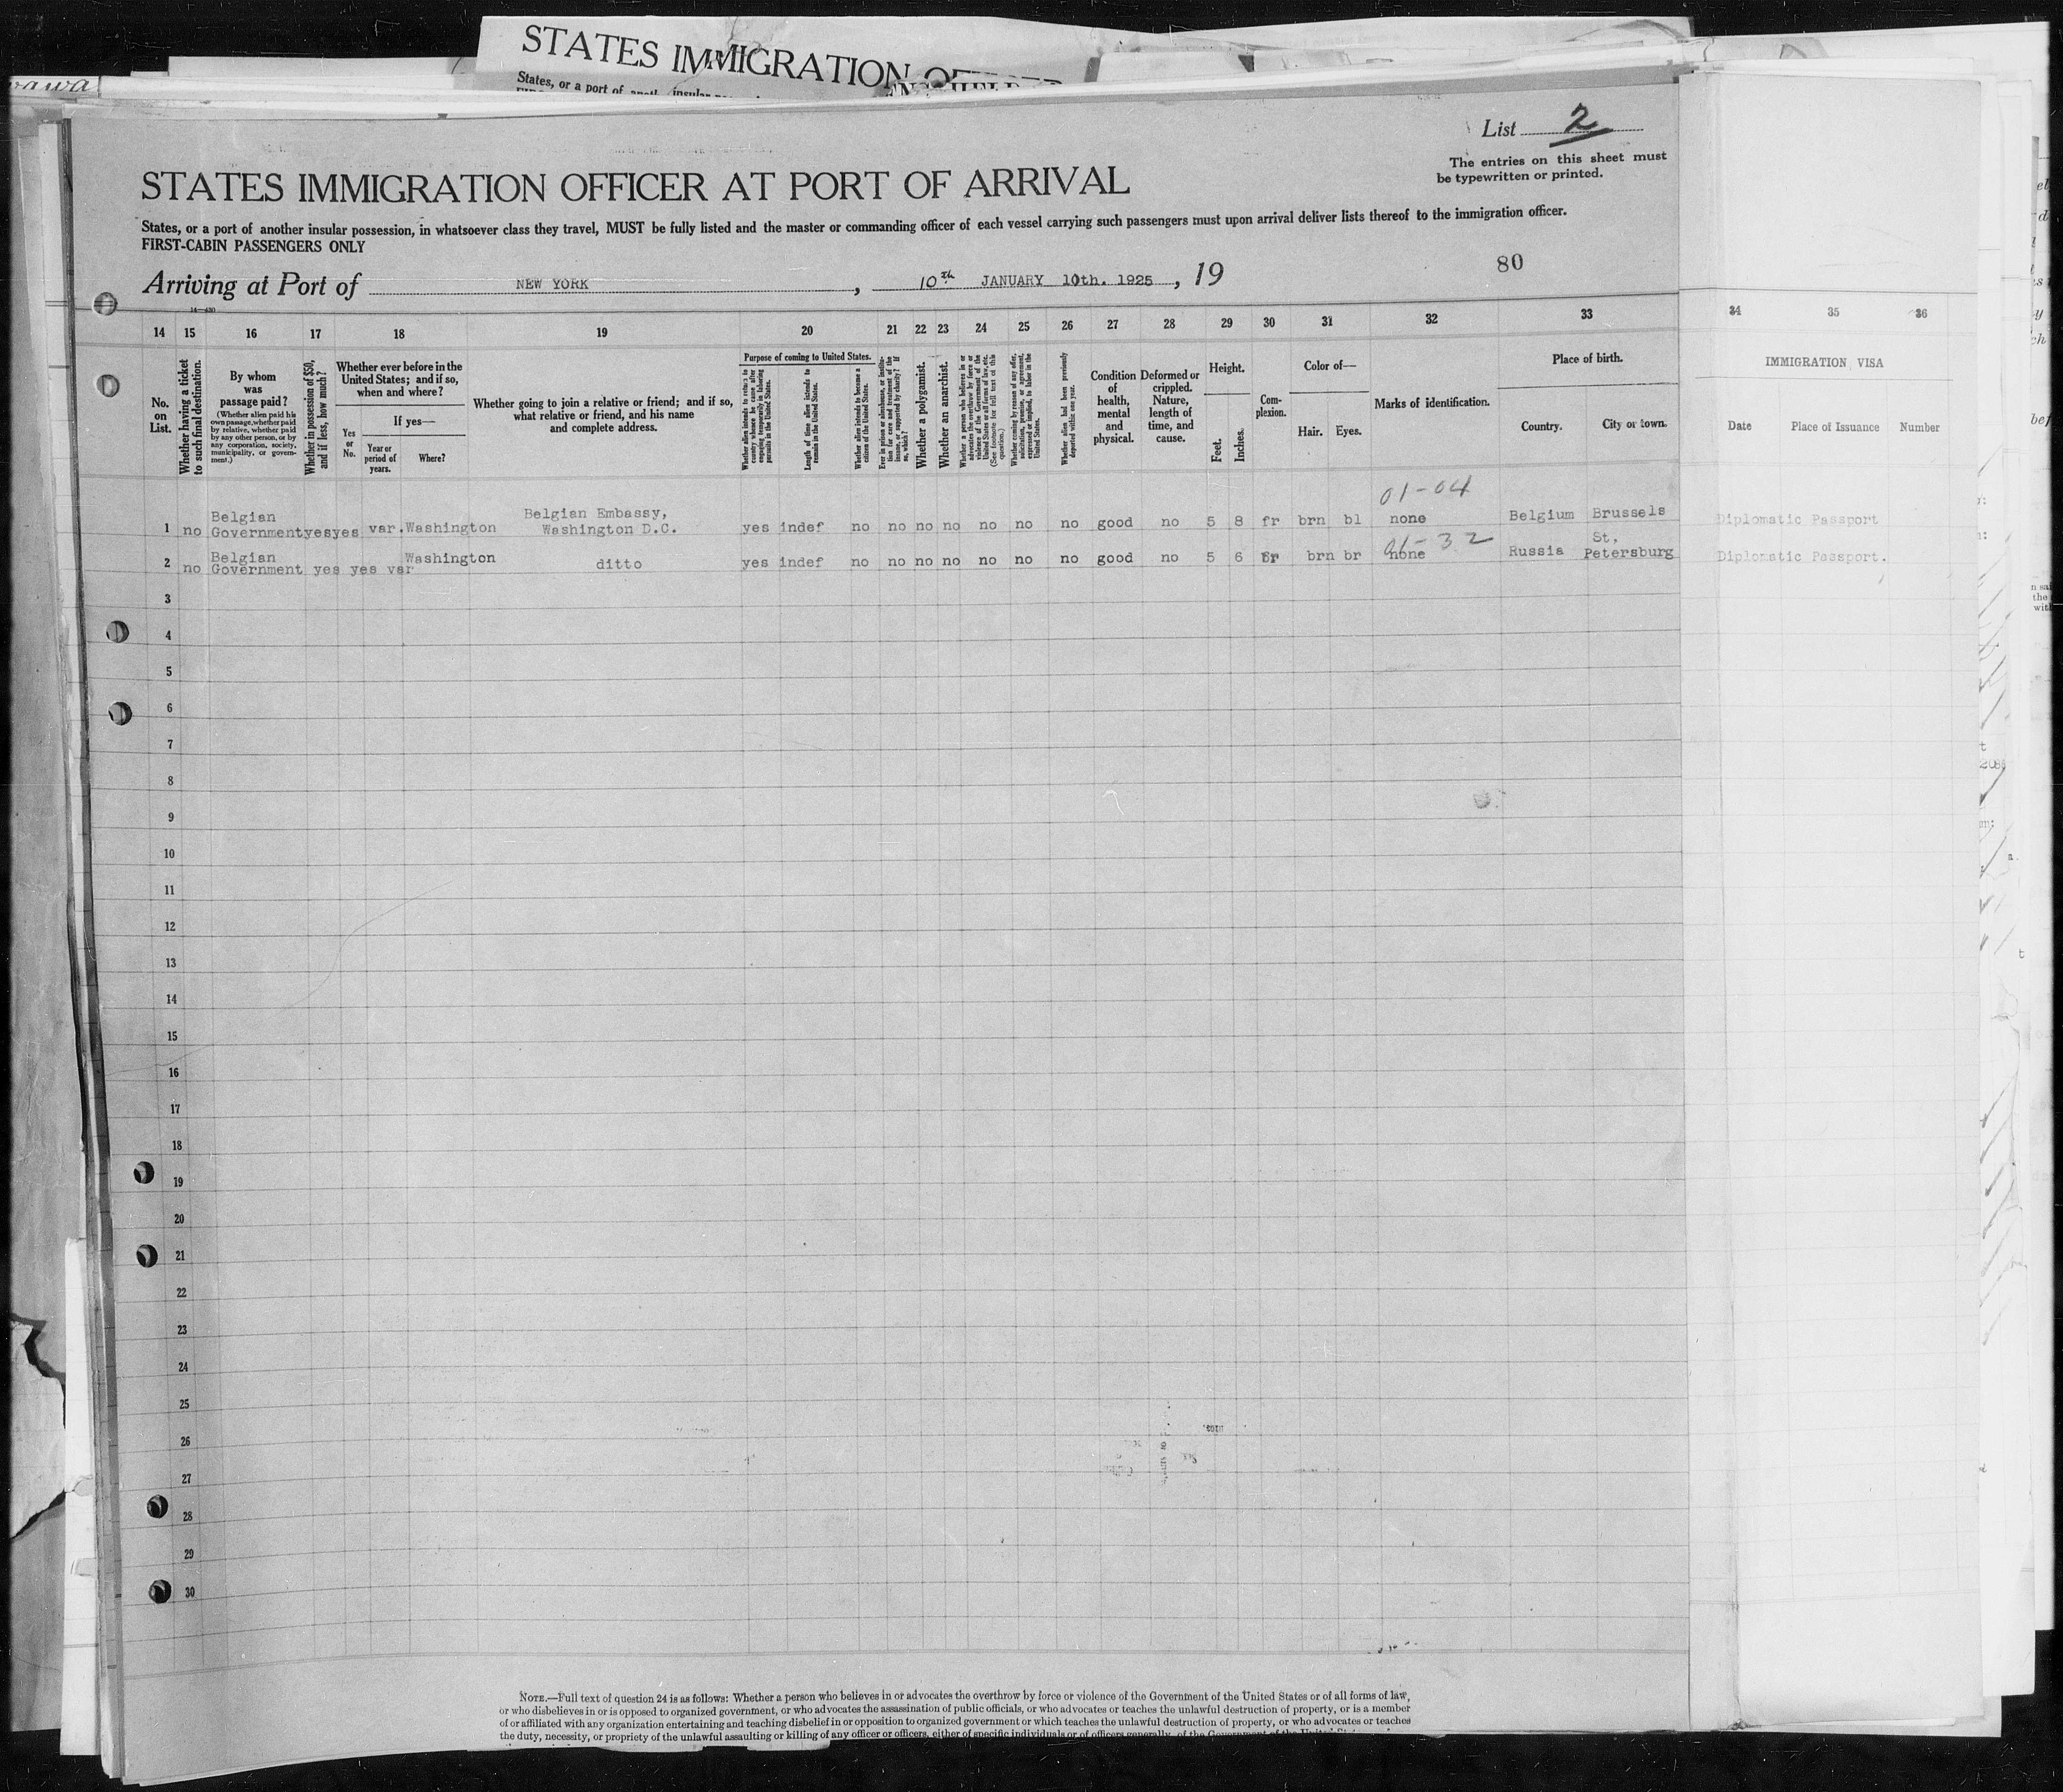 STATES IMMIGRATION
States, or a port of
List 2
The entries on this sheet must
be typewritten or printed.
STATES IMMIGRATION OFFICER AT PORT OF ARRIVAL
States, or a port of another insular possession, in whatsoever class they travel, MUST be fully listed and the master or commanding officer of each vessel carrying such passengers must upon arrival deliver lists thereof to the immigration officer.
FIRST-CABIN PASSENGERS ONLY
80
Arriving at Port of NEW YORK, 10th JANUARY 10th. 1925, 19
14 15 16 17 18 19 20 21 22 23 24 25 26 27 28 29 30 31 32 33 34 35 36
No. on List.
Whether having a ticket to such final destination.
By whom was passage paid?
(Whether alien paid his own passage, whether paid by relative, whether paid by any other person, or by any corporation, society, municipality, or government.)
Whether in possession of $50, and if less, how much?
Whether ever before in the United States; and if so, when and where?
Yes or No.
If yes—
Year or period of years.
Where?
Whether going to join a relative or friend; and if so, what relative or friend, and his name and complete address.
Purpose of coming to United States.
Whether alien intends to return to country whence he came after engaging temporarily in laboring pursuits in the United States.
Length of time alien intends to remain in the United States.
Whether alien intends to become a citizen of the United States.
Ever in prison or almshouse, or institution for care and treatment of the insane, or supported by charity? If so, which?
Whether a polygamist.
Whether an anarchist.
Whether a person who believes in or advocates the overthrow by force or violence of the Government of the United States or all forms of law, etc. (See footnote for full text of this question.)
Whether coming by reason of any offer, solicitation, promise, or agreement, expressed or implied, to labor in the United States.
Whether alien had been previously deported within one year.
Condition of health, mental and physical.
Deformed or crippled. Nature, length of time, and cause.
Height.
Feet. Inches.
Complexion.
Color of—
Hair. Eyes.
Marks of identification.
Place of birth.
Country. City or town.
IMMIGRATION VISA
Date Place of Issuance Number
01-04
1 no Belgian Government yes yes var. Washington Belgian Embassy, Washington D.C. yes indef no no no no no no no good no 5 8 fr brn bl none Belgium Brussels Diplomatic Passport
01-32
2 no Belgian Government yes yes var Washington ditto yes indef no no no no no no no good no 5 6 fr brn br none Russia St, Petersburg Diplomatic Passport.
3
4
5
6
7
8
9
10
11
12
13
14
15
16
17
18
19
20
21
22
23
24
25
26
27
28
29
30
NOTE.—Full text of question 24 is as follows: Whether a person who believes in or advocates the overthrow by force or violence of the Government of the United States or of all forms of law,
or who disbelieves in or is opposed to organized government, or who advocates the assassination of public officials, or who advocates or teaches the unlawful destruction of property, or is a member
of or affiliated with any organization entertaining and teaching disbelief in or opposition to organized government or which teaches the unlawful destruction of property, or who advocates or teaches
the duty, necessity, or propriety of the unlawful assaulting or killing of any officer or officers, either of specific individuals or of officers generally, of the Government of the United States